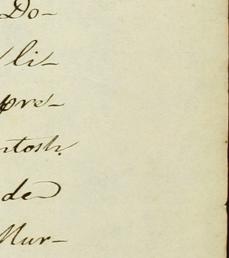 Do-
li-
pre-
ntosh.
de
Mur-